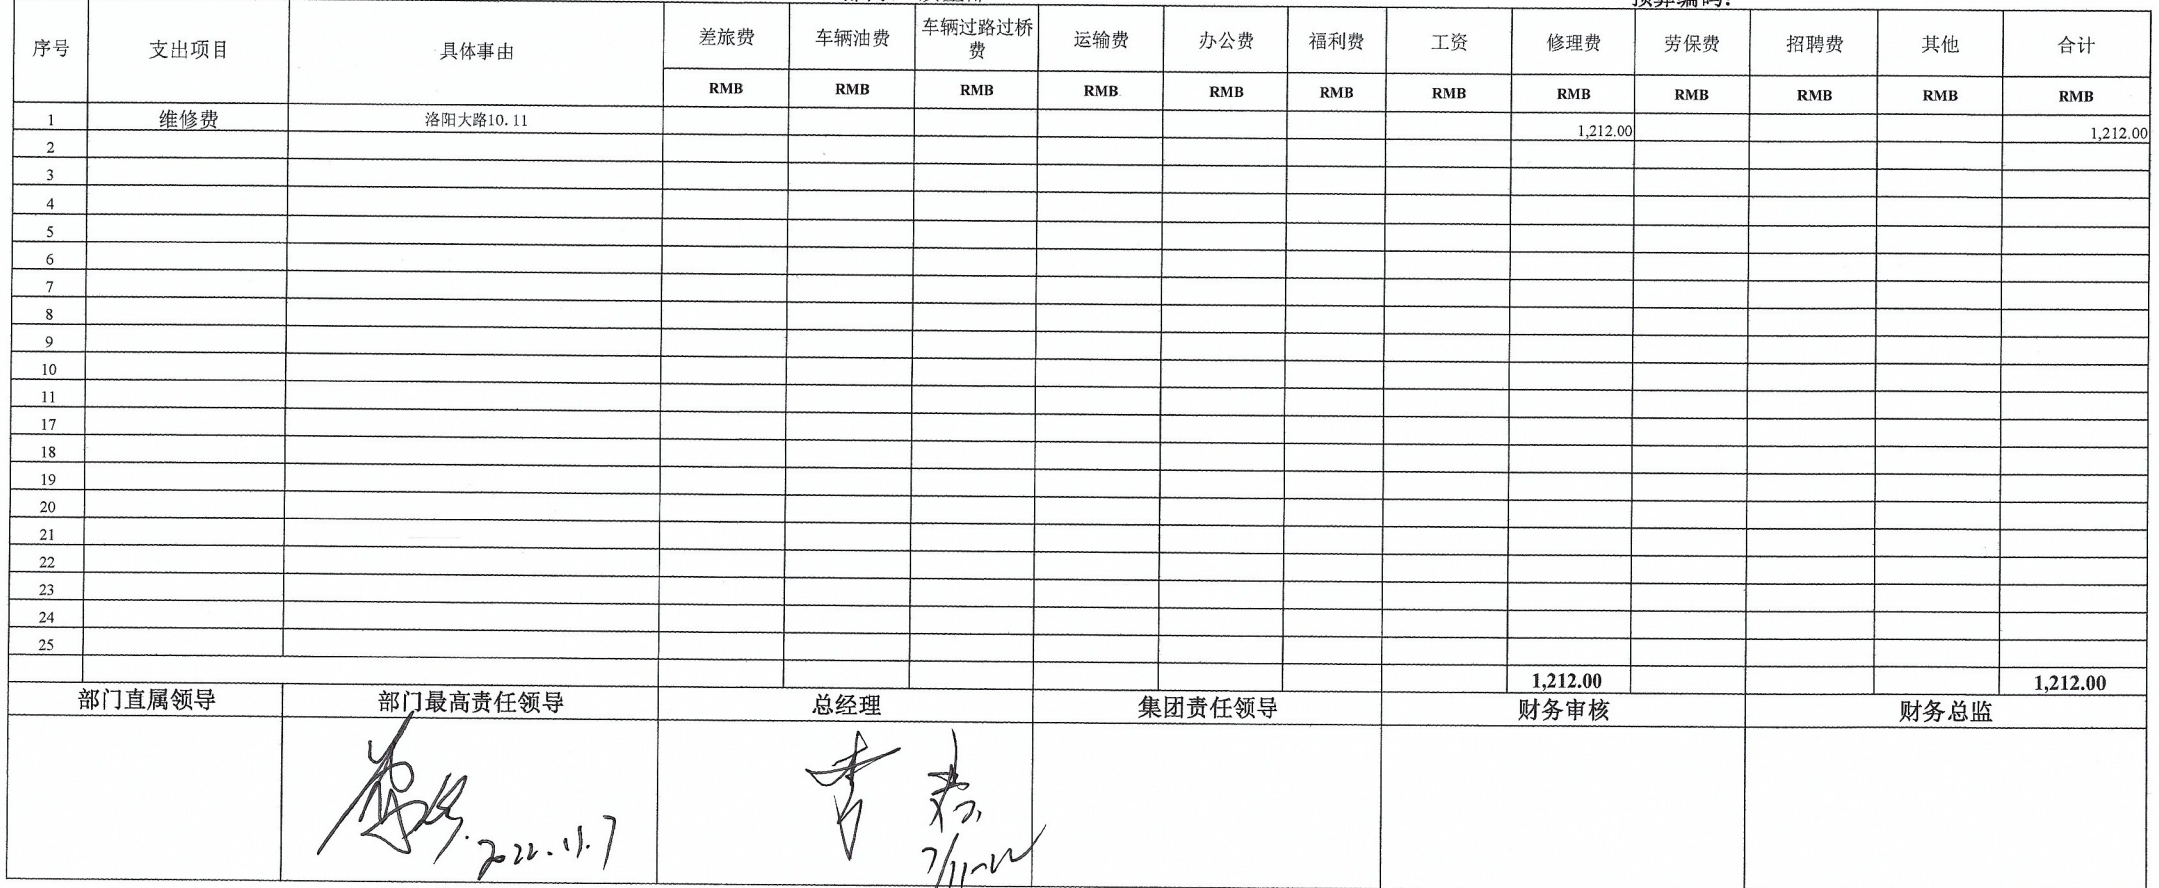 预算编码:
序号 支出项目 具体事由 差旅费 车辆油费 车辆过路过桥费 运输费 办公费 福利费 工资 修理费 劳保费 招聘费 其他 合计
RMB RMB RMB RMB RMB RMB RMB RMB RMB RMB RMB RMB
1 维修费 洛阳大路10.11 1,212.00 1,212.00
2
3
4
5
6
7
8
9
10
11
17
18
19
20
21
22
23
24
25
1,212.00 1,212.00
部门直属领导 部门最高责任领导 总经理 集团责任领导 财务审核 财务总监
2022.11.7
7/11-22